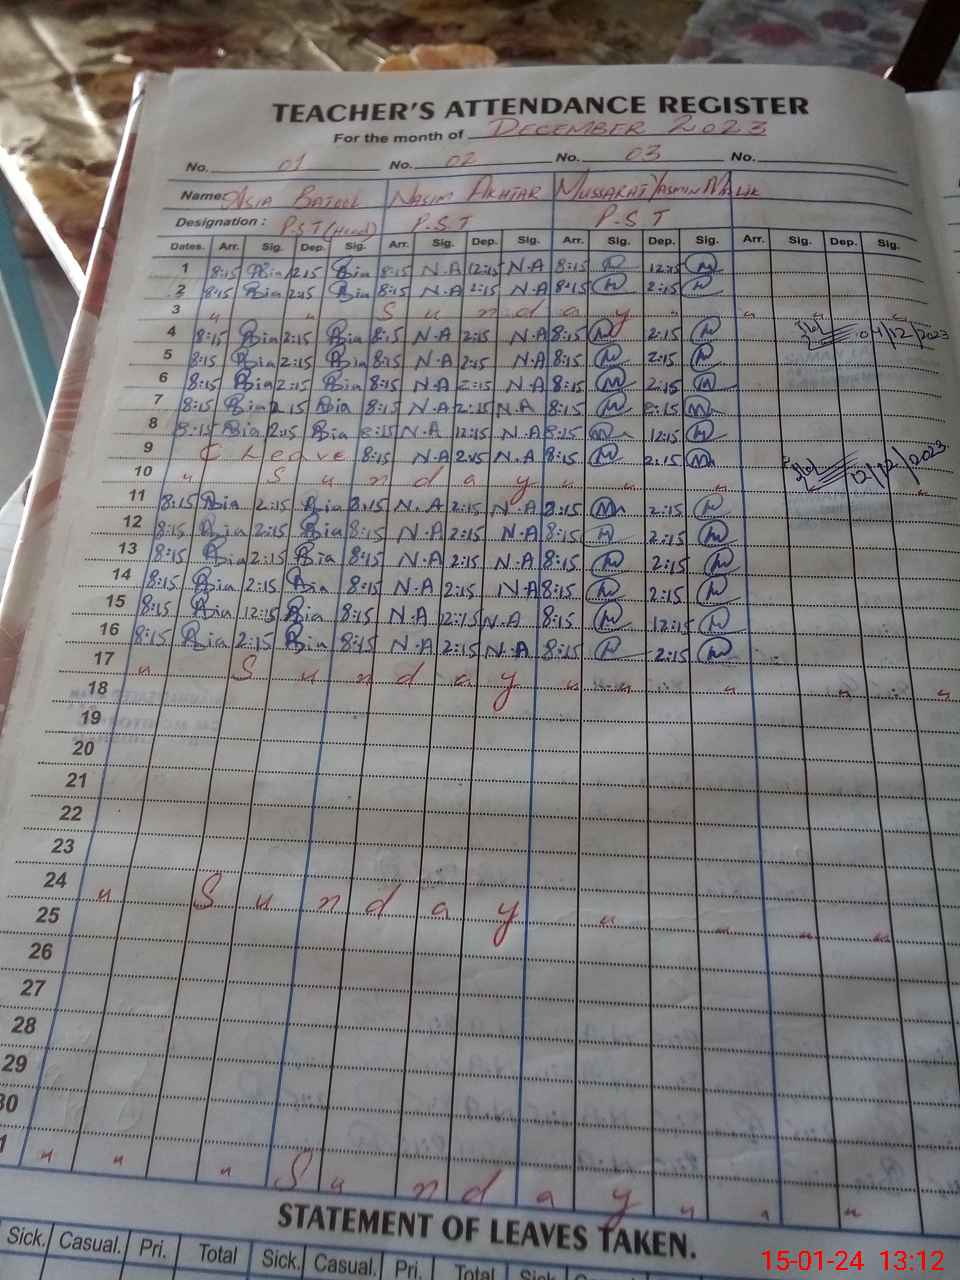 TEACHER'S ATTENDANCE REGISTER
For the month of DECEMBER 2023
No. 01 No. 02 No. 03 No.
Name: ASIA BATOOL NASIM AKHTAR MUSSARAT YASMIN MALIK
Designation: P.S.T (Head) P.S.T P.S.T
Dates. Arr. Sig. Dep. Sig. Arr. Sig. Dep. Sig. Arr. Sig. Dep. Sig. Arr. Sig. Dep. Sig.
1 8:15 Asia 2:15 Asia 8:15 N.A 12:15 N.A 8:15 M 12:15 M
2 8:15 Asia 2:15 Asia 8:15 N.A 2:15 N.A 8:15 M 2:15 M
3 " " S u n d a y " " " "
4 8:15 Asia 2:15 Asia 8:15 N.A 2:15 N.A 8:15 M 2:15 M 04/12/2023
5 8:15 Asia 2:15 Asia 8:15 N.A 2:15 N.A 8:15 M 2:15 M
6 8:15 Asia 2:15 Asia 8:15 N.A 2:15 N.A 8:15 M 2:15 M
7 8:15 Asia 2:15 Asia 8:15 N.A 2:15 N.A 8:15 M 2:15 M
8 8:15 Asia 2:15 Asia 8:15 N.A 12:15 N.A 8:15 M 12:15 M
9 C Leave 8:15 N.A 2:15 N.A 8:15 M 2:15 M 12/12/2023
10 " S u n d a y " " " " "
11 8:15 Asia 2:15 Asia 8:15 N.A 2:15 N.A 8:15 M 2:15 M
12 8:15 Asia 2:15 Asia 8:15 N.A 2:15 N.A 8:15 M 2:15 M
13 8:15 Asia 2:15 Asia 8:15 N.A 2:15 N.A 8:15 M 2:15 M
14 8:15 Asia 2:15 Asia 8:15 N.A 2:15 N.A 8:15 M 2:15 M
15 8:15 Asia 12:15 Asia 8:15 N.A 2:15 N.A 8:15 M 12:15 M
16 8:15 Asia 2:15 Asia 8:15 N.A 2:15 N.A 8:15 M 2:15 M
17 " S u n d a y " " " " "
18
19
20
21
22
23
24 " S u n d a y " " " "
25
26
27
28
29
30
1 " " " S u n d a y " " "
STATEMENT OF LEAVES TAKEN.
Sick. Casual. Pri. Total Sick. Casual. Pri. Total Sick. Casual.
15-01-24 13:12